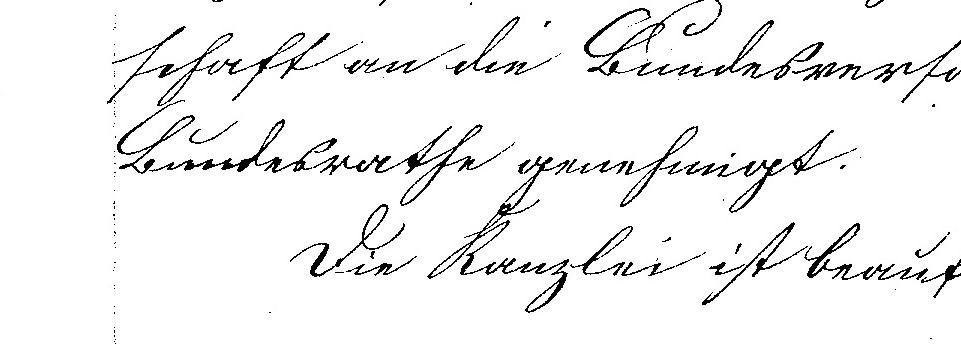 schaft an die Bundesversa
Bundesrathe genehmigt.
Die Kanzlei ist beauf